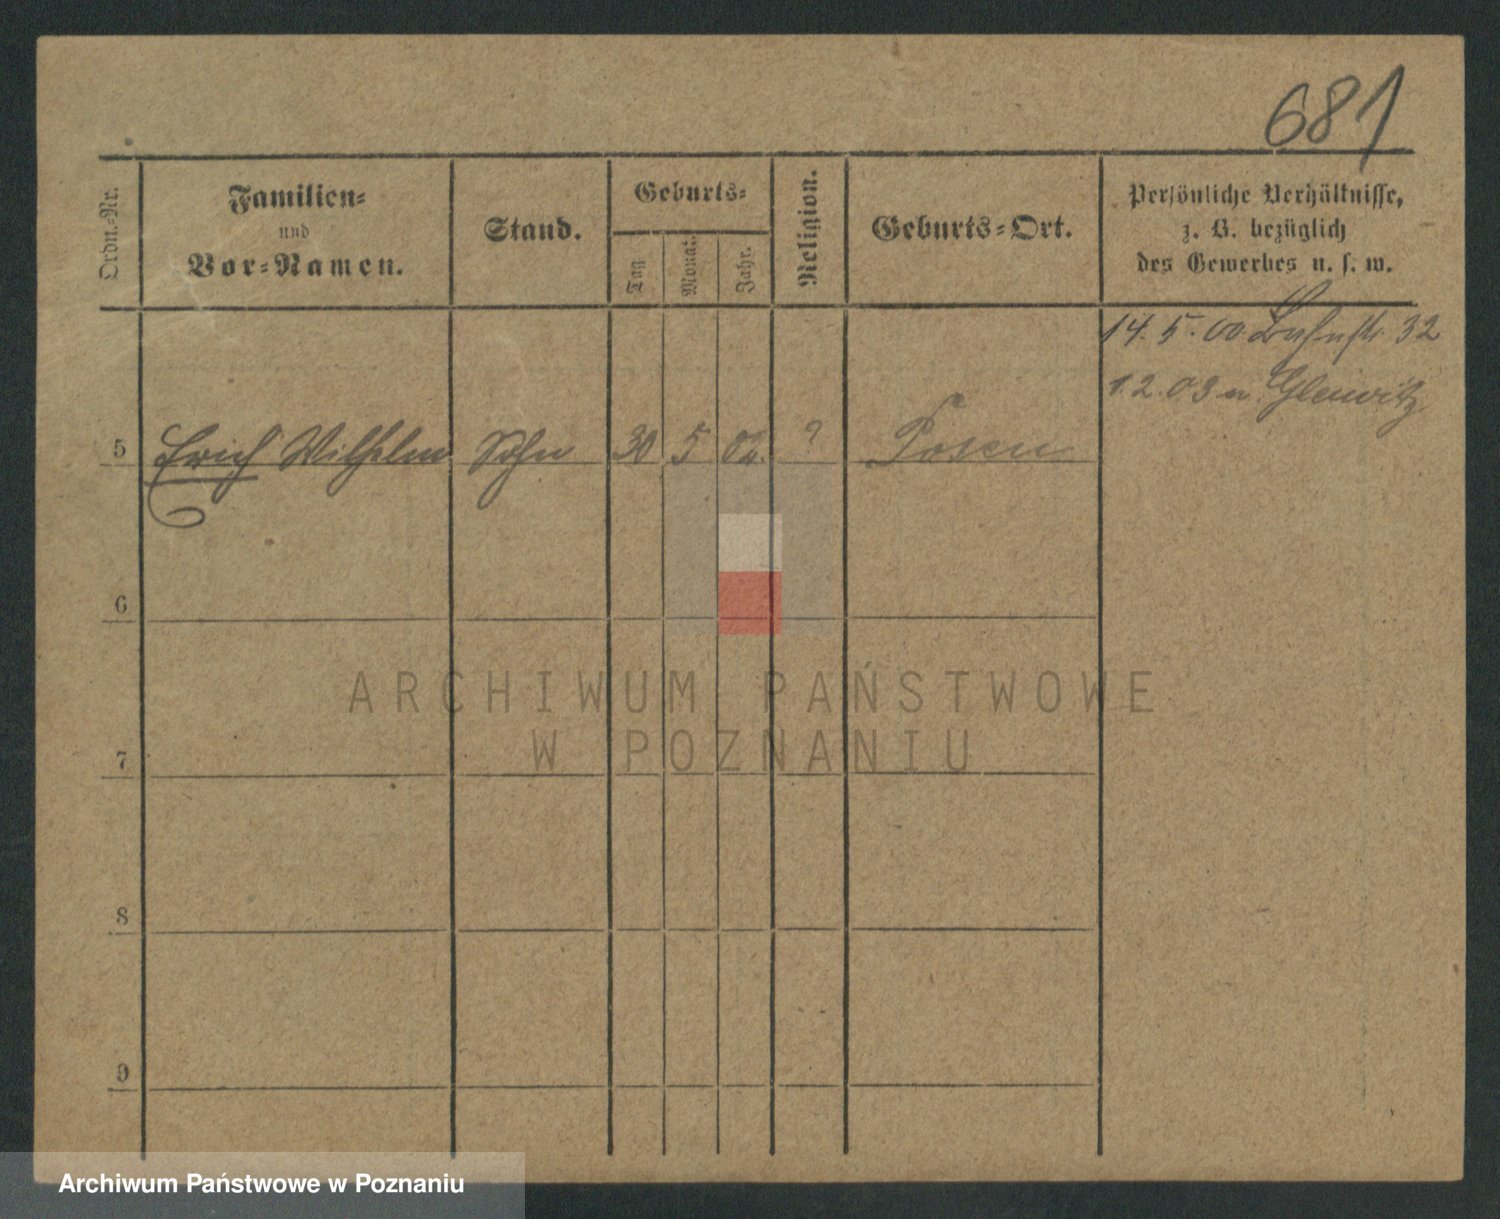 681
Ordn.-Nr.
Familien-
und
Vor-Namen.
Stand.
Geburts-
Tag
Monat.
Jahr.
Religion.
Geburts-Ort.
Persönliche Verhältnisse,
z. B. bezüglich
des Gewerbes u. s. w.
14. 5. 00 32
1.2.03 n Gleiwitz
5 Erich Wilhelm Sohn 30 5 02. ? Posen
6
7
8
9
ARCHIWUM PAŃSTWOWE
W POZNANIU
Archiwum Państwowe w Poznaniu